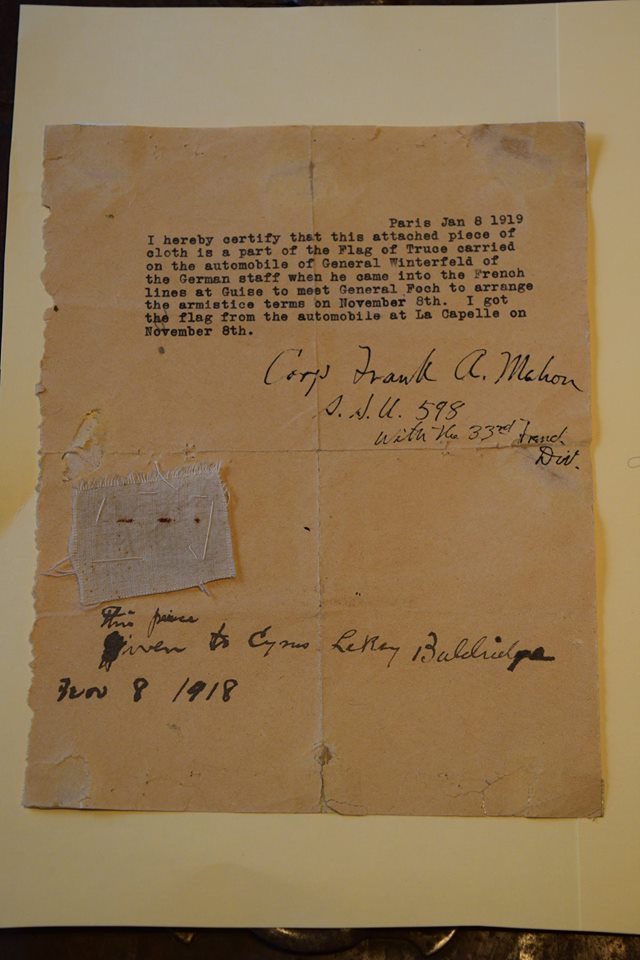 Paris Jan 8 1919
I hereby certify that this attached piece of
cloth is a part of the Flag of Truce carried
on the automobile of General Winterfeld of
the German staff when he came into the French
lines at Guise to meet General Foch to arrange
the armistice terms on November 8th. I got
the flag from the automobile at La Capelle on
November 8th.
Corp Frank A. Mahon
S.S.U. 598
with the 33rd French
Div.
This piece
given to Cyrus LeRoy Baldridge
Nov 8 1918